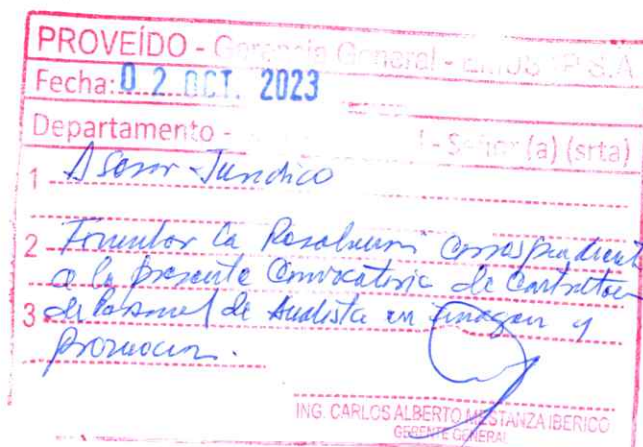 PROVEÍDO - Gerencia General - S.A
Fecha: 02 OCT. 2023
Departamento - - Señor (a) (srta)
1 Asesor Jurídico
2 Formular la Resolución correspondient
a la presente Convocatoria de
3 de Personal de Analista en Imagen y
Promocion.
ING. CARLOS ALBERTO MESTANZA IBERICO
GERENTE GENERAL